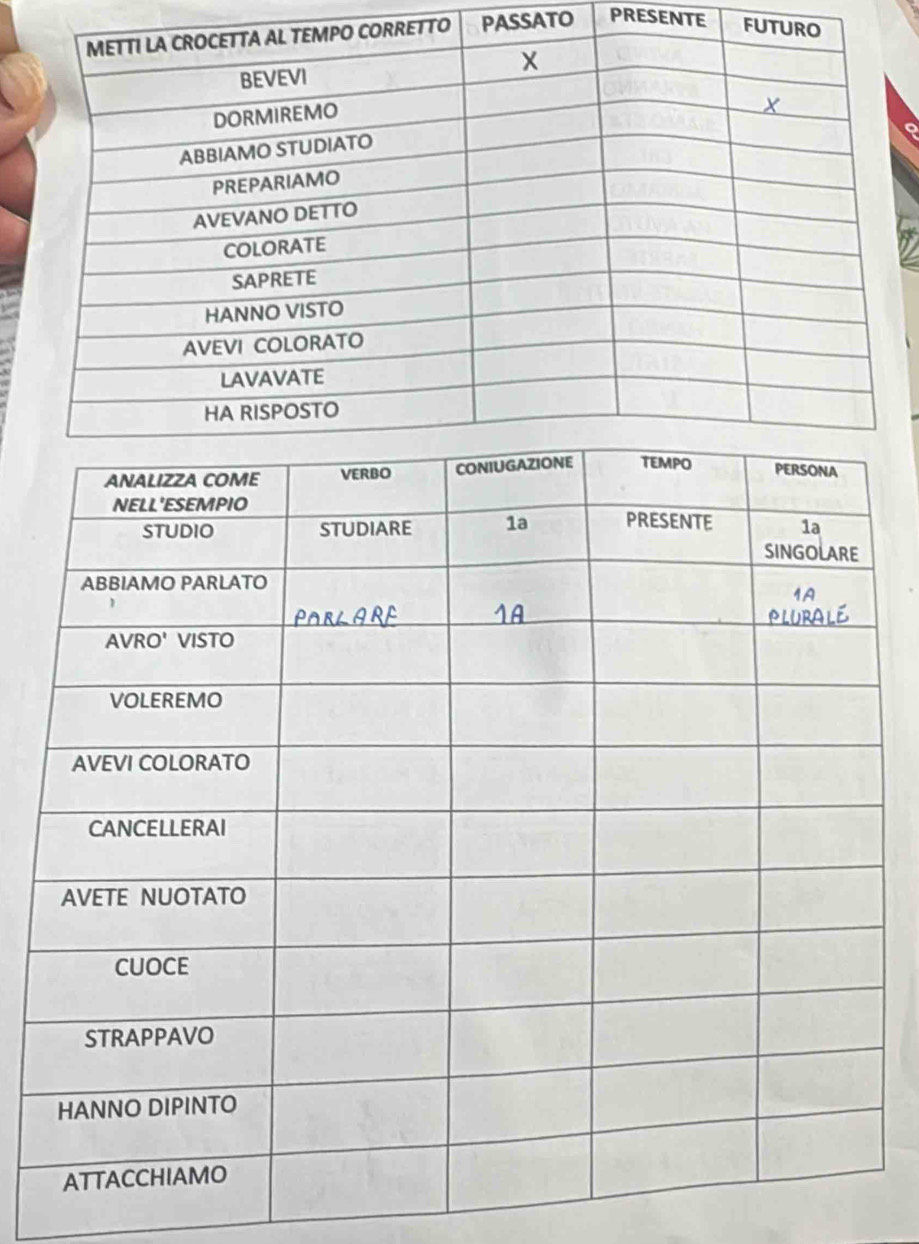 METTI LA CROCETTA AL TEMPO CORRETTO PASSATO PRESENTE FUTURO
BEVEVI X
DORMIREMO X
ABBIAMO STUDIATO
PREPARIAMO
AVEVANO DETTO
COLORATE
SAPRETE
HANNO VISTO
AVEVI COLORATO
LAVAVATE
HA RISPOSTO
ANALIZZA COME VERBO CONIUGAZIONE TEMPO PERSONA
NELL'ESEMPIO
STUDIO STUDIARE 1a PRESENTE 1a
SINGOLARE
ABBIAMO PARLATO 1A
PARLARE 1A PLURALE
AVRO' VISTO
VOLEREMO
AVEVI COLORATO
CANCELLERAI
AVETE NUOTATO
CUOCE
STRAPPAVO
HANNO DIPINTO
ATTACCHIAMO